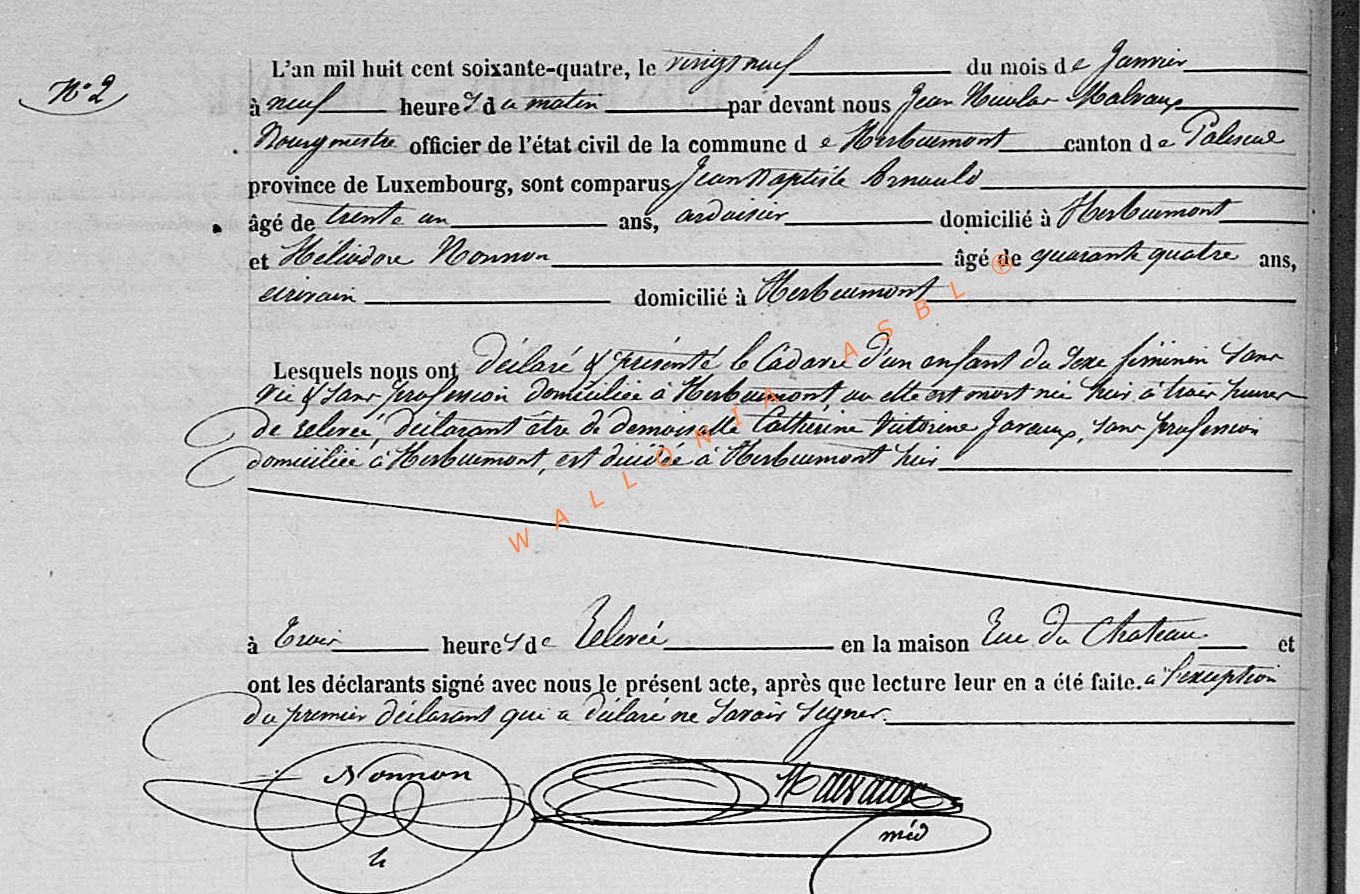 N° 2
L'an mil huit cent soixante-quatre, le vingt neuf du mois de Janvier
à neuf heures du matin par devant nous Jean Nicolas Malvaux
Bourgmestre officier de l'état civil de la commune de Herbeumont canton de Paliseul
province de Luxembourg, sont comparus Jean Baptiste Arnould
âgé de trente un ans, ardoisier domicilié à Herbeumont
et Héliodore Nonnon âgé de quarante quatre ans,
écrivain domicilié à Herbeumont
Lesquels nous ont déclaré & présenté le Cadavre d'un enfant du sexe féminin sans
vie & sans profession domiciliée à Herbeumont où elle est mort née hier à trois heures
de relevée, déclarant être de demoiselle Catherine Victorine Javaux, sans profession
domiciliée à Herbeumont, est décidée à Herbeumont hier
à trois heures de Relevée en la maison Rue du Chateau et
ont les déclarants signé avec nous le présent acte, après que lecture leur en a été faite. à l'exception
du premier déclarant qui a déclaré ne savoir signer.
Nonnon
h
Malvaux
méd
WALLONIA ASBL ®